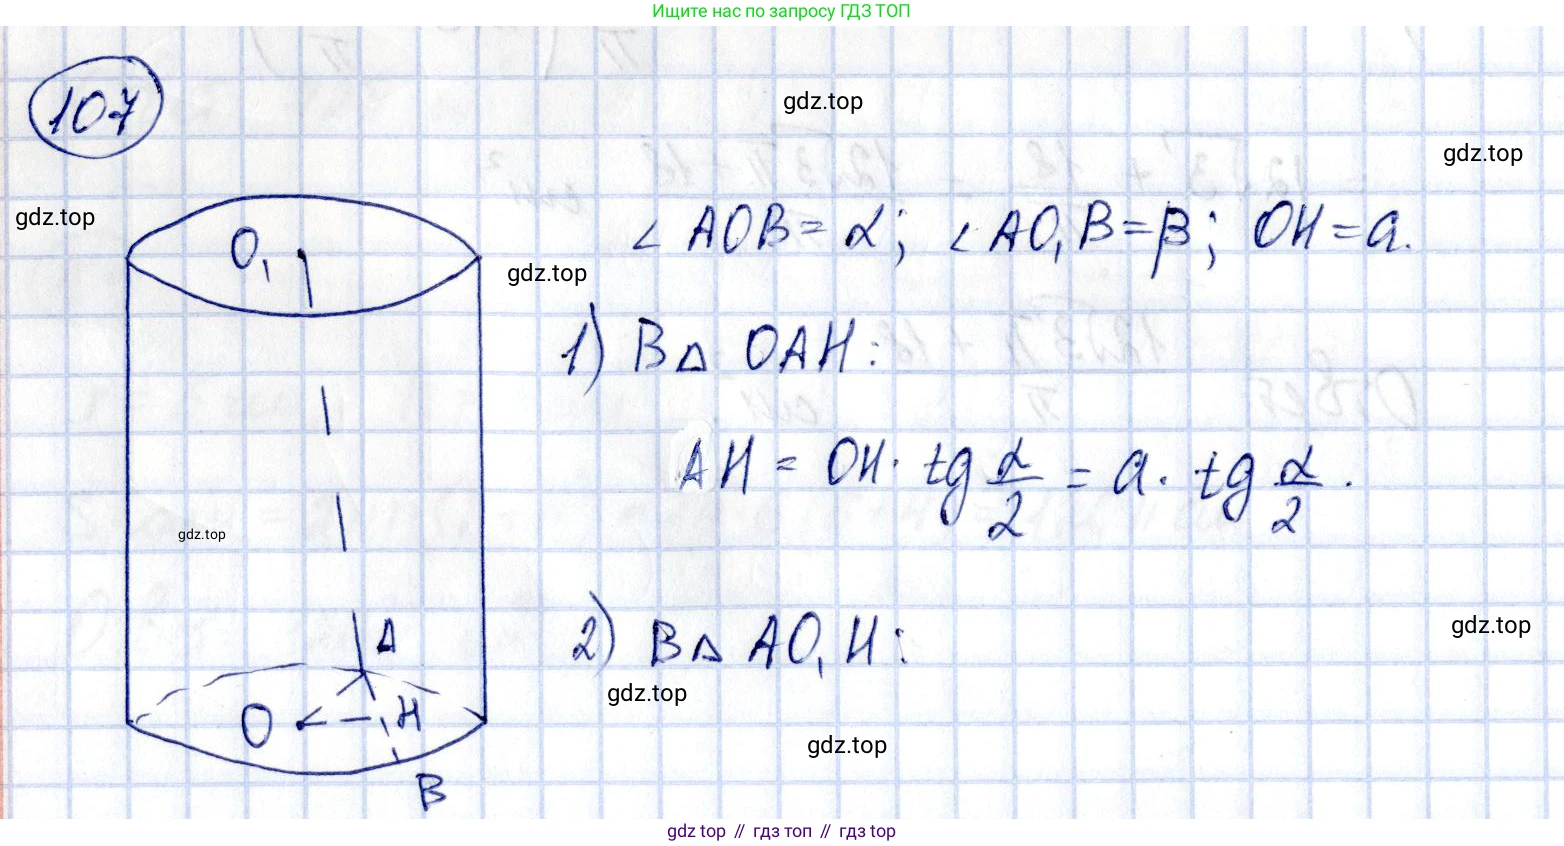 Ищите нас по запросу ГДЗ ТОП
107
gdz.top
gdz.top
gdz.top
∠ AOB = α; ∠ AO₁B = β; OH = a.
O₁
gdz.top
1) В △ OAH:
AH = OH · tg α/2 = a · tg α/2.
gdz.top
2) В △ AO₁H:
gdz.top
A
gdz.top
O
H
gdz.top
B
gdz.top // гдз топ // гдз top